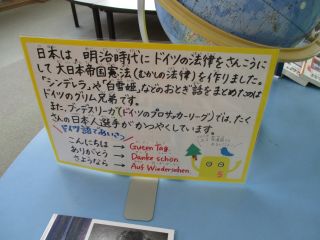 日本は、明治時代にドイツの法律をさんこうに
して大日本帝国憲法(むかしの法律)を作りました。
「シンデレラ」や「白雪姫」などのおとぎ話をまとめたのは
ドイツのグリム兄弟です。
また、ブンデスリーガ(ドイツのプロサッカーリーグ)では、たく
さんの日本人選手がかつやくしています。
ドイツ語であいさつ
こんにちは → Guten Tag.
ありがとう → Danke schon.
さようなら → Auf Wiedersehen.